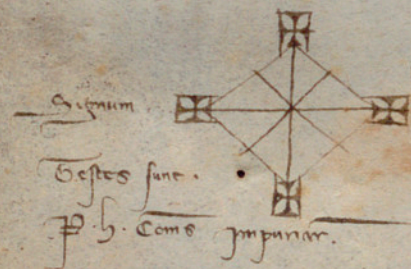 Signum
Testes sunt.
P. h. Comes Impuriar.